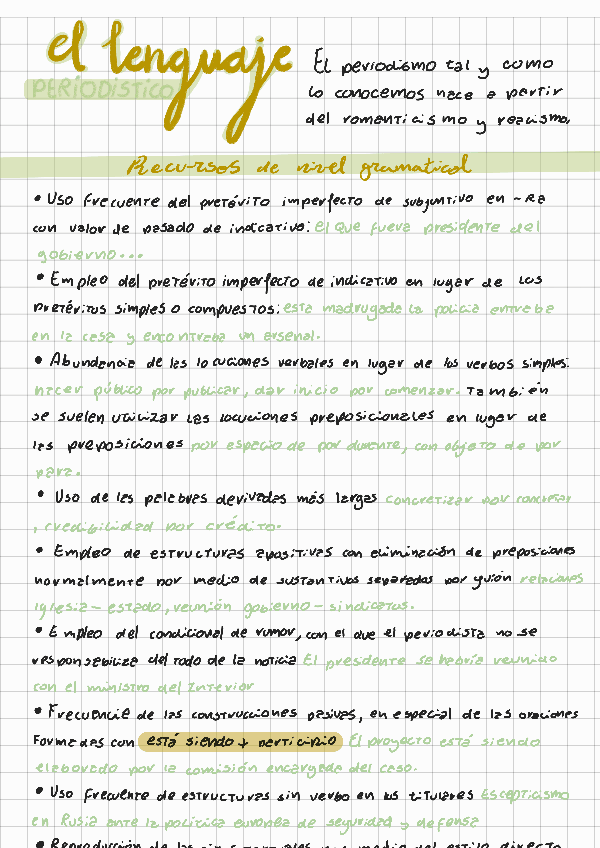 el lenguaje
PERIODÍSTICO
El periodismo tal y como
lo conocemos nace a partir
del romanticismo y realismo.
Recursos de nivel gramatical
• Uso frecuente del pretérito imperfecto de subjuntivo en -RA
con valor de pasado de indicativo: el que fuera presidente del
gobierno...
• Empleo del pretérito imperfecto de indicativo en lugar de los
pretéritos simples o compuestos: esta madrugada la policía entraba
en la casa y encontraba un arsenal.
• Abundancia de las locuciones verbales en lugar de los verbos simples:
hacer público por publicar, dar inicio por comenzar. También
se suelen utilizar las locuciones preposicionales en lugar de
las preposiciones por espacio de por durante, con objeto de por
para.
• Uso de las palabras derivadas más largas concretizar por concretar
, credibilidad por crédito.
• Empleo de estructuras apositivas con eliminación de preposiciones
normalmente por medio de sustantivos separados por guión relaciones
Iglesia - estado, reunión gobierno - sindicatos.
• Empleo del condicional de rumor, con el que el periodista no se
responsabiliza del todo de la noticia El presidente se habría reunido
con el ministro del Interior
• Frecuencia de las construcciones pasivas, en especial de las oraciones
formadas con está siendo + participio El proyecto está siendo
elaborado por la comisión encargada del caso.
• Uso frecuente de estructuras sin verbo en los titulares Escepticismo
en Rusia ante la política europea de seguridad y defensa
• Reproducción de las por medio del estilo directo